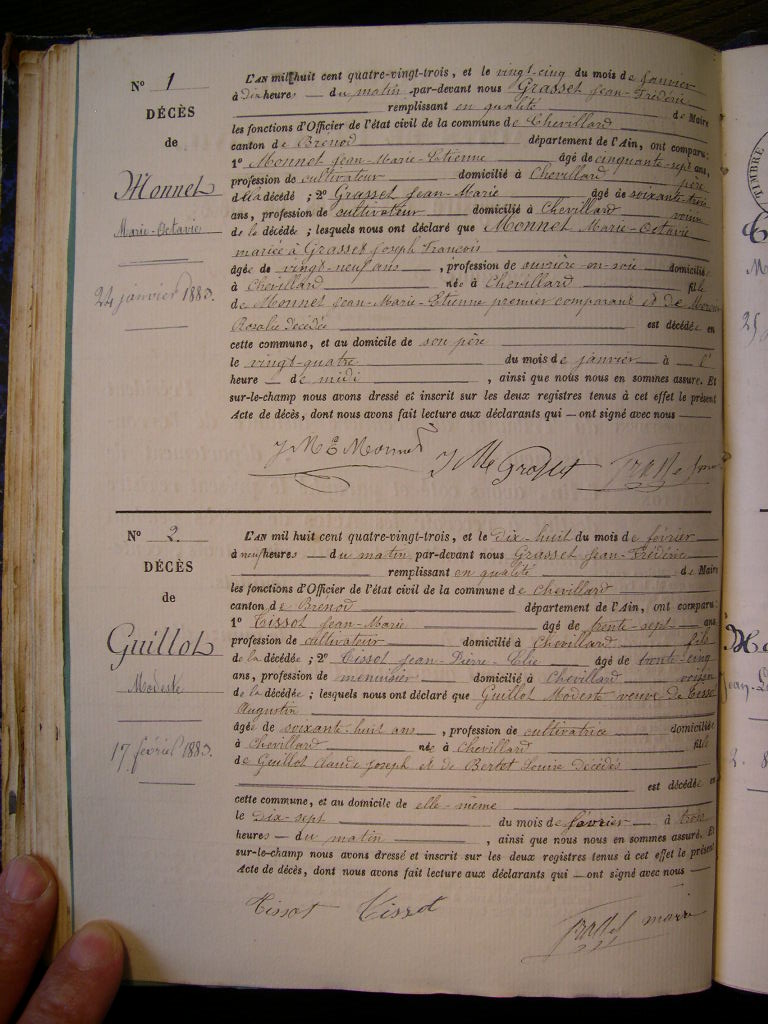 N° 1
DÉCÈS
de
Monnet
Marie-Octavie
24 janvier 1883.
L'AN mil huit cent quatre-vingt-trois, et le vingt-cinq du mois de janvier
à dix heures — du matin par-devant nous Grasset Jean-Frédéric
remplissant en qualité de Maire
les fonctions d'Officier de l'état civil de la commune de Chevillard
canton de Brénod département de l'Ain, ont comparu:
1° Monnet Jean-Marie-Etienne âgé de cinquante-sept ans,
profession de cultivateur domicilié à Chevillard père
de la décédé ; 2° Grasset Jean-Marie âgé de soixante-trois
ans, profession de cultivateur domicilié à Chevillard voisin
de la décédé ; lesquels nous ont déclaré que Monnet Marie-Octavie
mariée à Grasset Joseph François
âgée de vingt-neuf ans , profession de ouvrière-en-soie domiciliée
à Chevillard née à Chevillard fille
de Monnet Jean-Marie-Etienne premier comparant et de
Rosalie décédée est décédée en
cette commune, et au domicile de son père
le vingt-quatre du mois de janvier — à l'
heure — de midi , ainsi que nous nous en sommes assuré. Et
sur-le-champ nous avons dressé et inscrit sur les deux registres tenus à cet effet le présent
Acte de décès, dont nous avons fait lecture aux déclarants qui — ont signé avec nous —
J M E Monnet J M Grasset Grasset
N° 2.
DÉCÈS
de
Guillot
Modeste
17 février 1883.
L'AN mil huit cent quatre-vingt-trois, et le dix-huit du mois de février
à neuf heures — du matin par-devant nous Grasset Jean-Frédéric
remplissant en qualité de Maire
les fonctions d'Officier de l'état civil de la commune de Chevillard
canton de Brénod département de l'Ain, ont comparu:
1° Tissot Jean-Marie âgé de trente-sept ans
profession de cultivateur domicilié à Chevillard fils
de la décédée ; 2° Tissot Jean-Pierre-Elie âgé de trente-cinq
ans, profession de menuisier domicilié à Chevillard voisin
de la décédée ; lesquels nous ont déclaré que Guillot Modeste veuve de Tissot
Augustin
âgée de soixante-huit ans , profession de cultivatrice domiciliée
à Chevillard née à Chevillard fille
de Guillot Claude Joseph et de Bertet Louise Décédés
est décédée en
cette commune, et au domicile de elle-même
le dix-sept du mois de février — à trois
heures — du matin , ainsi que nous nous en sommes assuré. Et
sur-le-champ nous avons dressé et inscrit sur les deux registres tenus à cet effet le présent
Acte de décès, dont nous avons fait lecture aux déclarants qui — ont signé avec nous —
Tissot Tissot
Grasset maire
TIMBRE